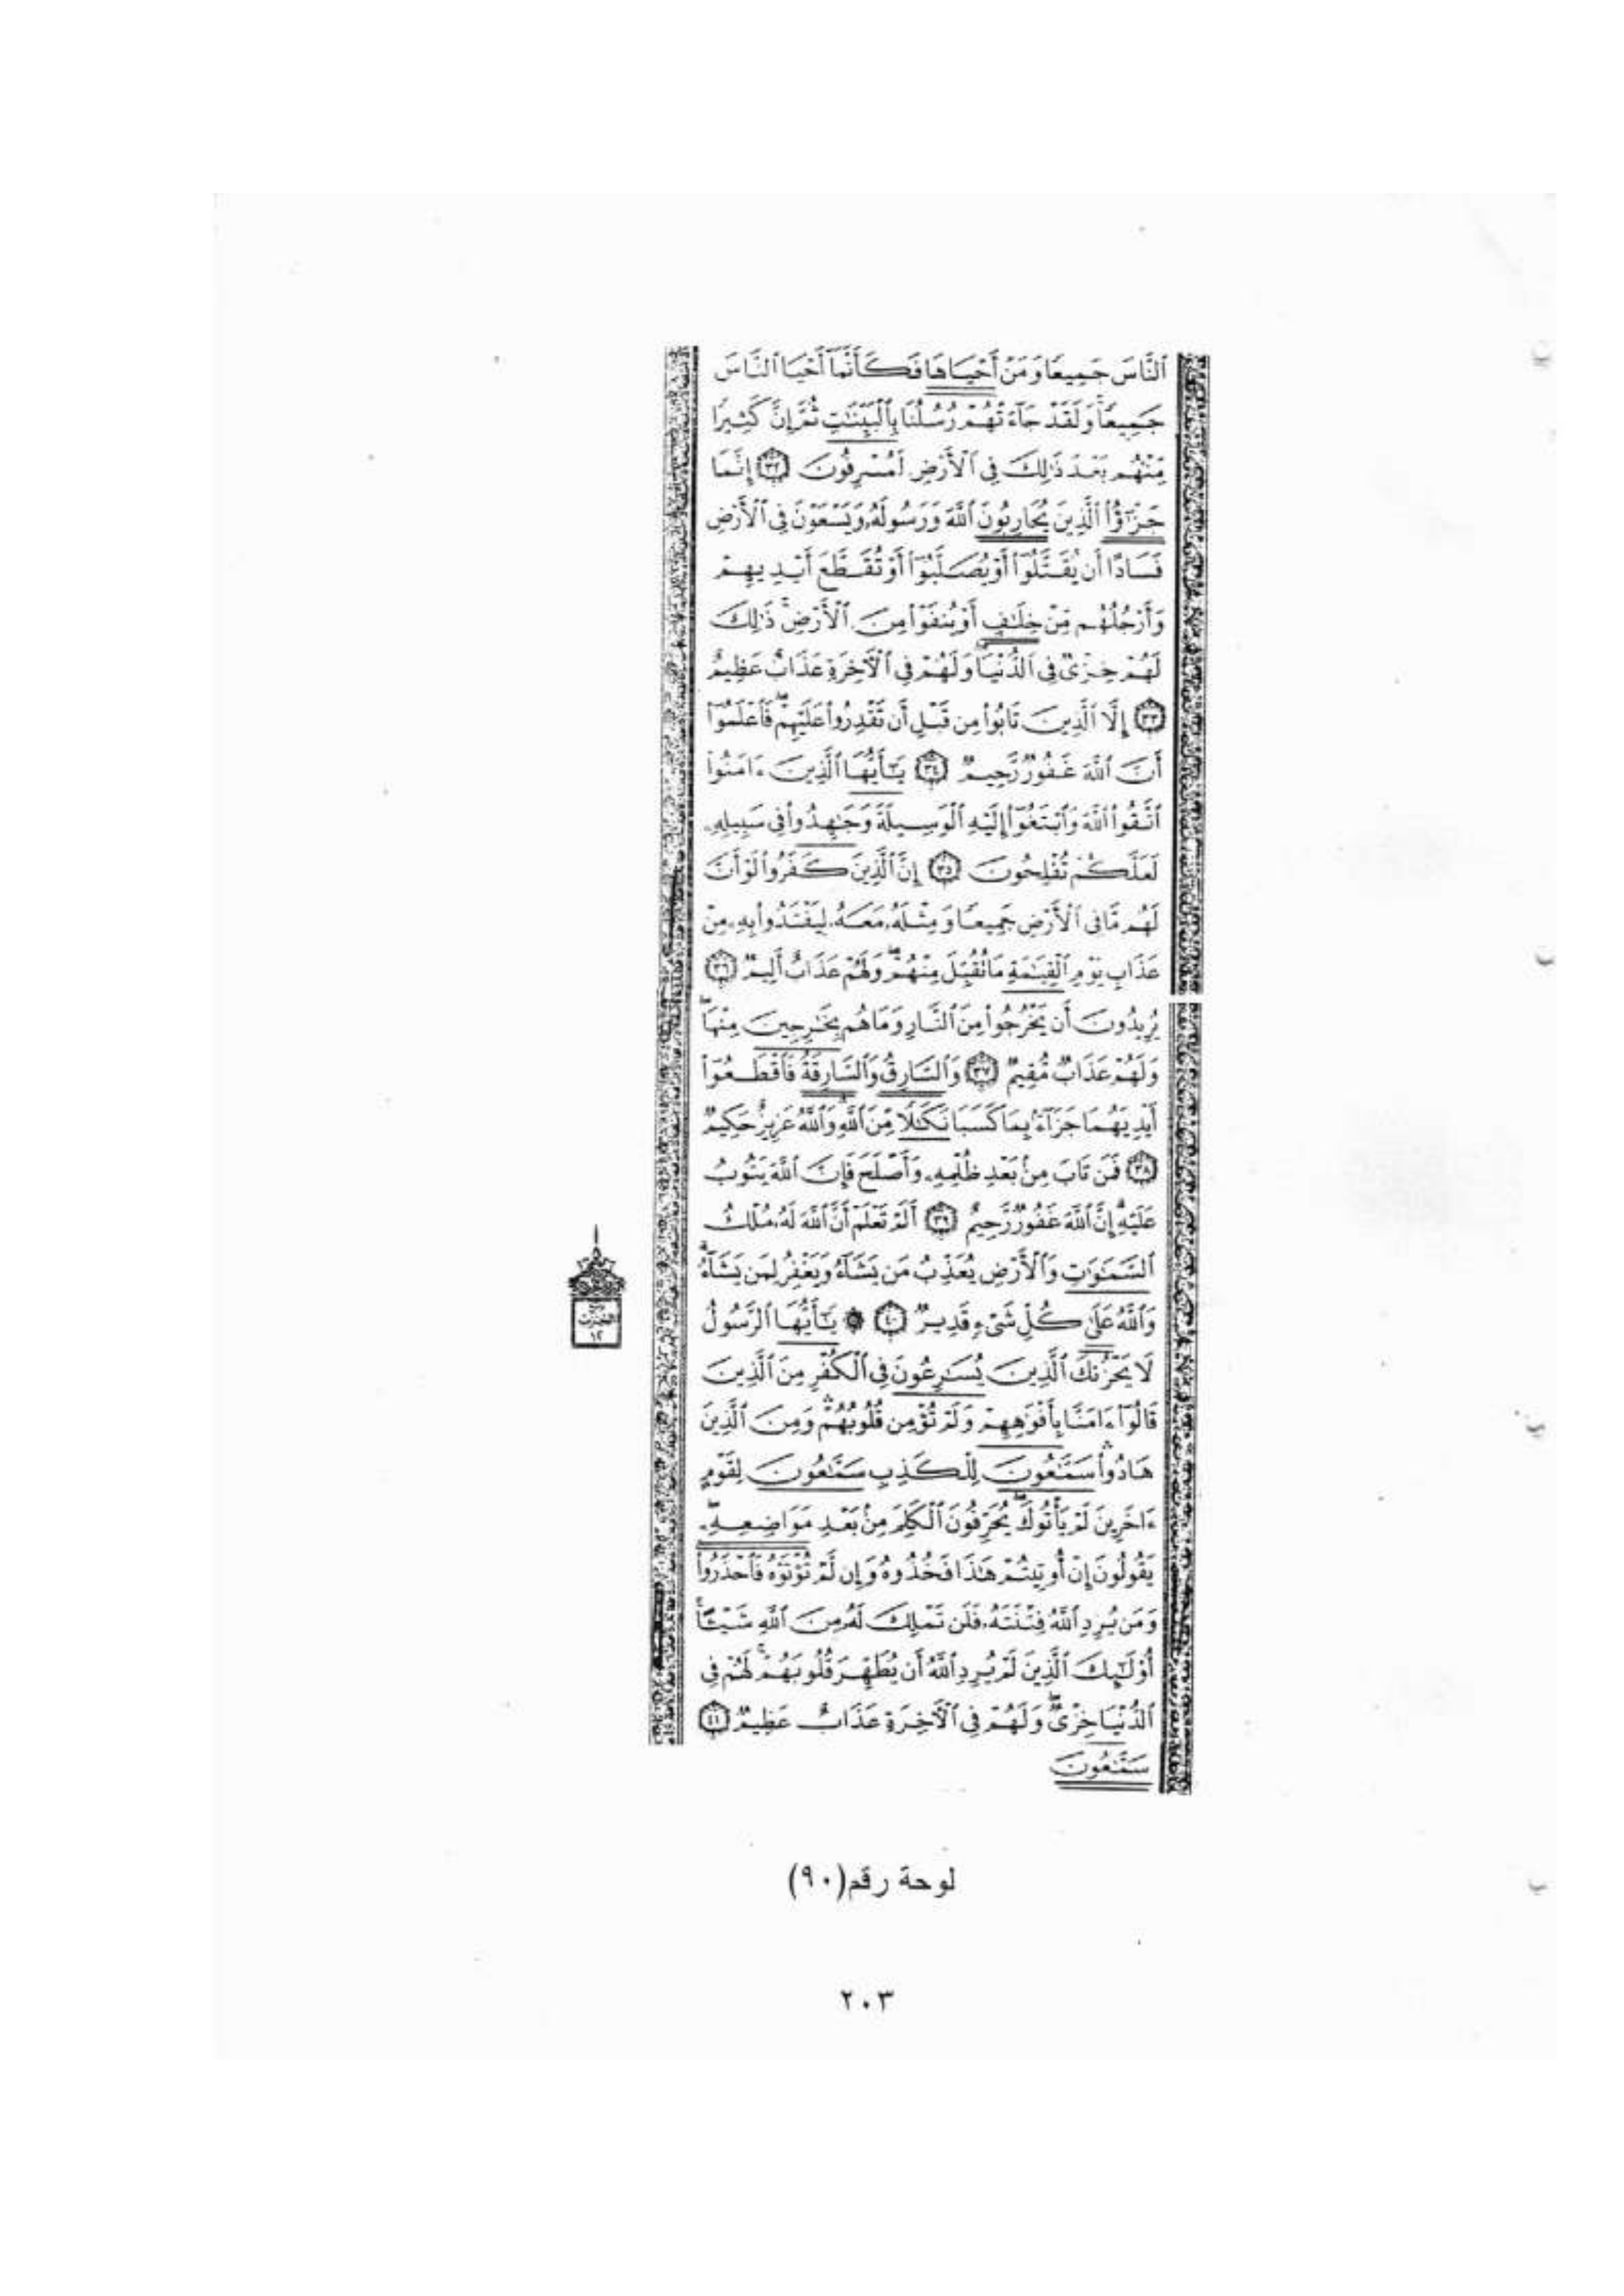 ٱلنَّاسَ جَمِيعًا وَمَنْ أَحْيَاهَا فَكَأَنَّمَآ أَحْيَا ٱلنَّاسَ
جَمِيعًا ۚ وَلَقَدْ جَآءَتْهُمْ رُسُلُنَا بِٱلْبَيِّنَٰتِ ثُمَّ إِنَّ كَثِيرًا
مِّنْهُم بَعْدَ ذَٰلِكَ فِى ٱلْأَرْضِ لَمُسْرِفُونَ ٣٢ إِنَّمَا
جَزَٰٓؤُا۟ ٱلَّذِينَ يُحَارِبُونَ ٱللَّهَ وَرَسُولَهُۥ وَيَسْعَوْنَ فِى ٱلْأَرْضِ
فَسَادًا أَن يُقَتَّلُوٓا۟ أَوْ يُصَلَّبُوٓا۟ أَوْ تُقَطَّعَ أَيْدِيهِمْ
وَأَرْجُلُهُم مِّنْ خِلَٰفٍ أَوْ يُنفَوْا۟ مِنَ ٱلْأَرْضِ ۚ ذَٰلِكَ
لَهُمْ خِزْىٌ فِى ٱلدُّنْيَا ۖ وَلَهُمْ فِى ٱلْءَاخِرَةِ عَذَابٌ عَظِيمٌ
٣٣ إِلَّا ٱلَّذِينَ تَابُوا۟ مِن قَبْلِ أَن تَقْدِرُوا۟ عَلَيْهِمْ ۖ فَٱعْلَمُوٓا۟
أَنَّ ٱللَّهَ غَفُورٌ رَّحِيمٌ ٣٤ يَٰٓأَيُّهَا ٱلَّذِينَ ءَامَنُوا۟
ٱتَّقُوا۟ ٱللَّهَ وَٱبْتَغُوٓا۟ إِلَيْهِ ٱلْوَسِيلَةَ وَجَٰهِدُوا۟ فِى سَبِيلِهِۦ
لَعَلَّكُمْ تُفْلِحُونَ ٣٥ إِنَّ ٱلَّذِينَ كَفَرُوا۟ لَوْ أَنَّ
لَهُم مَّا فِى ٱلْأَرْضِ جَمِيعًا وَمِثْلَهُۥ مَعَهُۥ لِيَفْتَدُوا۟ بِهِۦ مِنْ
عَذَابِ يَوْمِ ٱلْقِيَٰمَةِ مَا تُقُبِّلَ مِنْهُمْ ۖ وَلَهُمْ عَذَابٌ أَلِيمٌ ٣٦
يُرِيدُونَ أَن يَخْرُجُوا۟ مِنَ ٱلنَّارِ وَمَا هُم بِخَٰرِجِينَ مِنْهَا ۖ
وَلَهُمْ عَذَابٌ مُّقِيمٌ ٣٧ وَٱلسَّارِقُ وَٱلسَّارِقَةُ فَٱقْطَعُوٓا۟
أَيْدِيَهُمَا جَزَآءًۢ بِمَا كَسَبَا نَكَٰلًا مِّنَ ٱللَّهِ ۗ وَٱللَّهُ عَزِيزٌ حَكِيمٌ
٣٨ فَمَن تَابَ مِنۢ بَعْدِ ظُلْمِهِۦ وَأَصْلَحَ فَإِنَّ ٱللَّهَ يَتُوبُ
عَلَيْهِ ۗ إِنَّ ٱللَّهَ غَفُورٌ رَّحِيمٌ ٣٩ أَلَمْ تَعْلَمْ أَنَّ ٱللَّهَ لَهُۥ مُلْكُ
ٱلسَّمَٰوَٰتِ وَٱلْأَرْضِ يُعَذِّبُ مَن يَشَآءُ وَيَغْفِرُ لِمَن يَشَآءُ ۗ
وَٱللَّهُ عَلَىٰ كُلِّ شَىْءٍ قَدِيرٌ ٤٠ ۞ يَٰٓأَيُّهَا ٱلرَّسُولُ
لَا يَحْزُنكَ ٱلَّذِينَ يُسَٰرِعُونَ فِى ٱلْكُفْرِ مِنَ ٱلَّذِينَ
قَالُوٓا۟ ءَامَنَّا بِأَفْوَٰهِهِمْ وَلَمْ تُؤْمِن قُلُوبُهُمْ ۛ وَمِنَ ٱلَّذِينَ
هَادُوا۟ ۛ سَمَّٰعُونَ لِلْكَذِبِ سَمَّٰعُونَ لِقَوْمٍ
ءَاخَرِينَ لَمْ يَأْتُوكَ ۖ يُحَرِّفُونَ ٱلْكَلِمَ مِنۢ بَعْدِ مَوَاضِعِهِۦ ۖ
يَقُولُونَ إِنْ أُوتِيتُمْ هَٰذَا فَخُذُوهُ وَإِن لَّمْ تُؤْتَوْهُ فَٱحْذَرُوا۟ ۚ
وَمَن يُرِدِ ٱللَّهُ فِتْنَتَهُۥ فَلَن تَمْلِكَ لَهُۥ مِنَ ٱللَّهِ شَيْـًٔا ۚ
أُو۟لَٰٓئِكَ ٱلَّذِينَ لَمْ يُرِدِ ٱللَّهُ أَن يُطَهِّرَ قُلُوبَهُمْ ۚ لَهُمْ فِى
ٱلدُّنْيَا خِزْىٌ ۖ وَلَهُمْ فِى ٱلْءَاخِرَةِ عَذَابٌ عَظِيمٌ ٤١
سَمَّٰعُونَ
١٢
لوحة رقم(٩٠)
٢٠٣